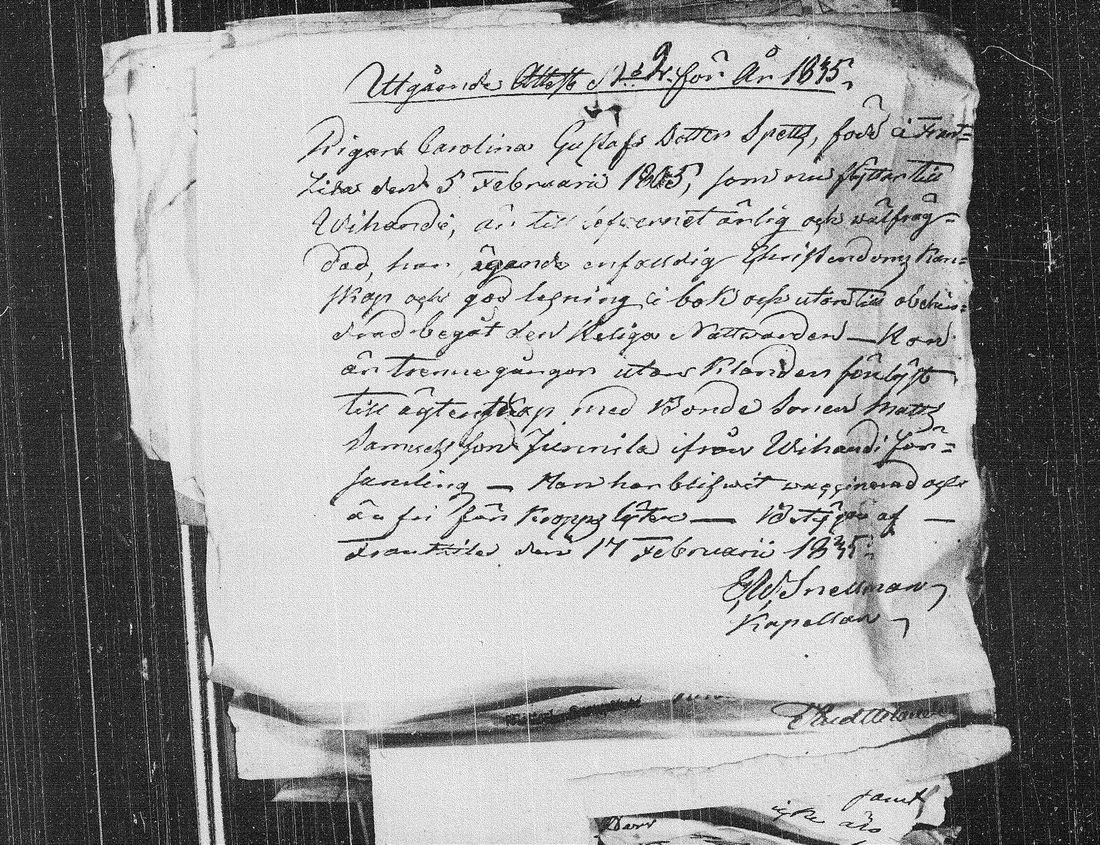 Utgående Attest N:o 2. för År 1835.
Pigan Carolina Gustafs Dotter Spetts, född i Frant=
zila den 5 Februarii 1815, som nu flyttar till
Wihandi, är till lefwernet ärlig och wälfräg=
dad, har ägande enfaldig Christendoms kun=
skap och god läsning i bok och utan till obehin=
drad begåt den Heliga Nattwarden — Hon
är trenne gångor utan klander förlyst
till ägtenskap med Bonde Sonen Matts
Samuels Son Junnila ifrån Wihandi för=
samling — Hon har blifwit waccinerad och
är fri från kropps lyten — Betygar af —
Frantzila den 17 Februarii 1835.
Snellman
Kapellan
samt
icke äro